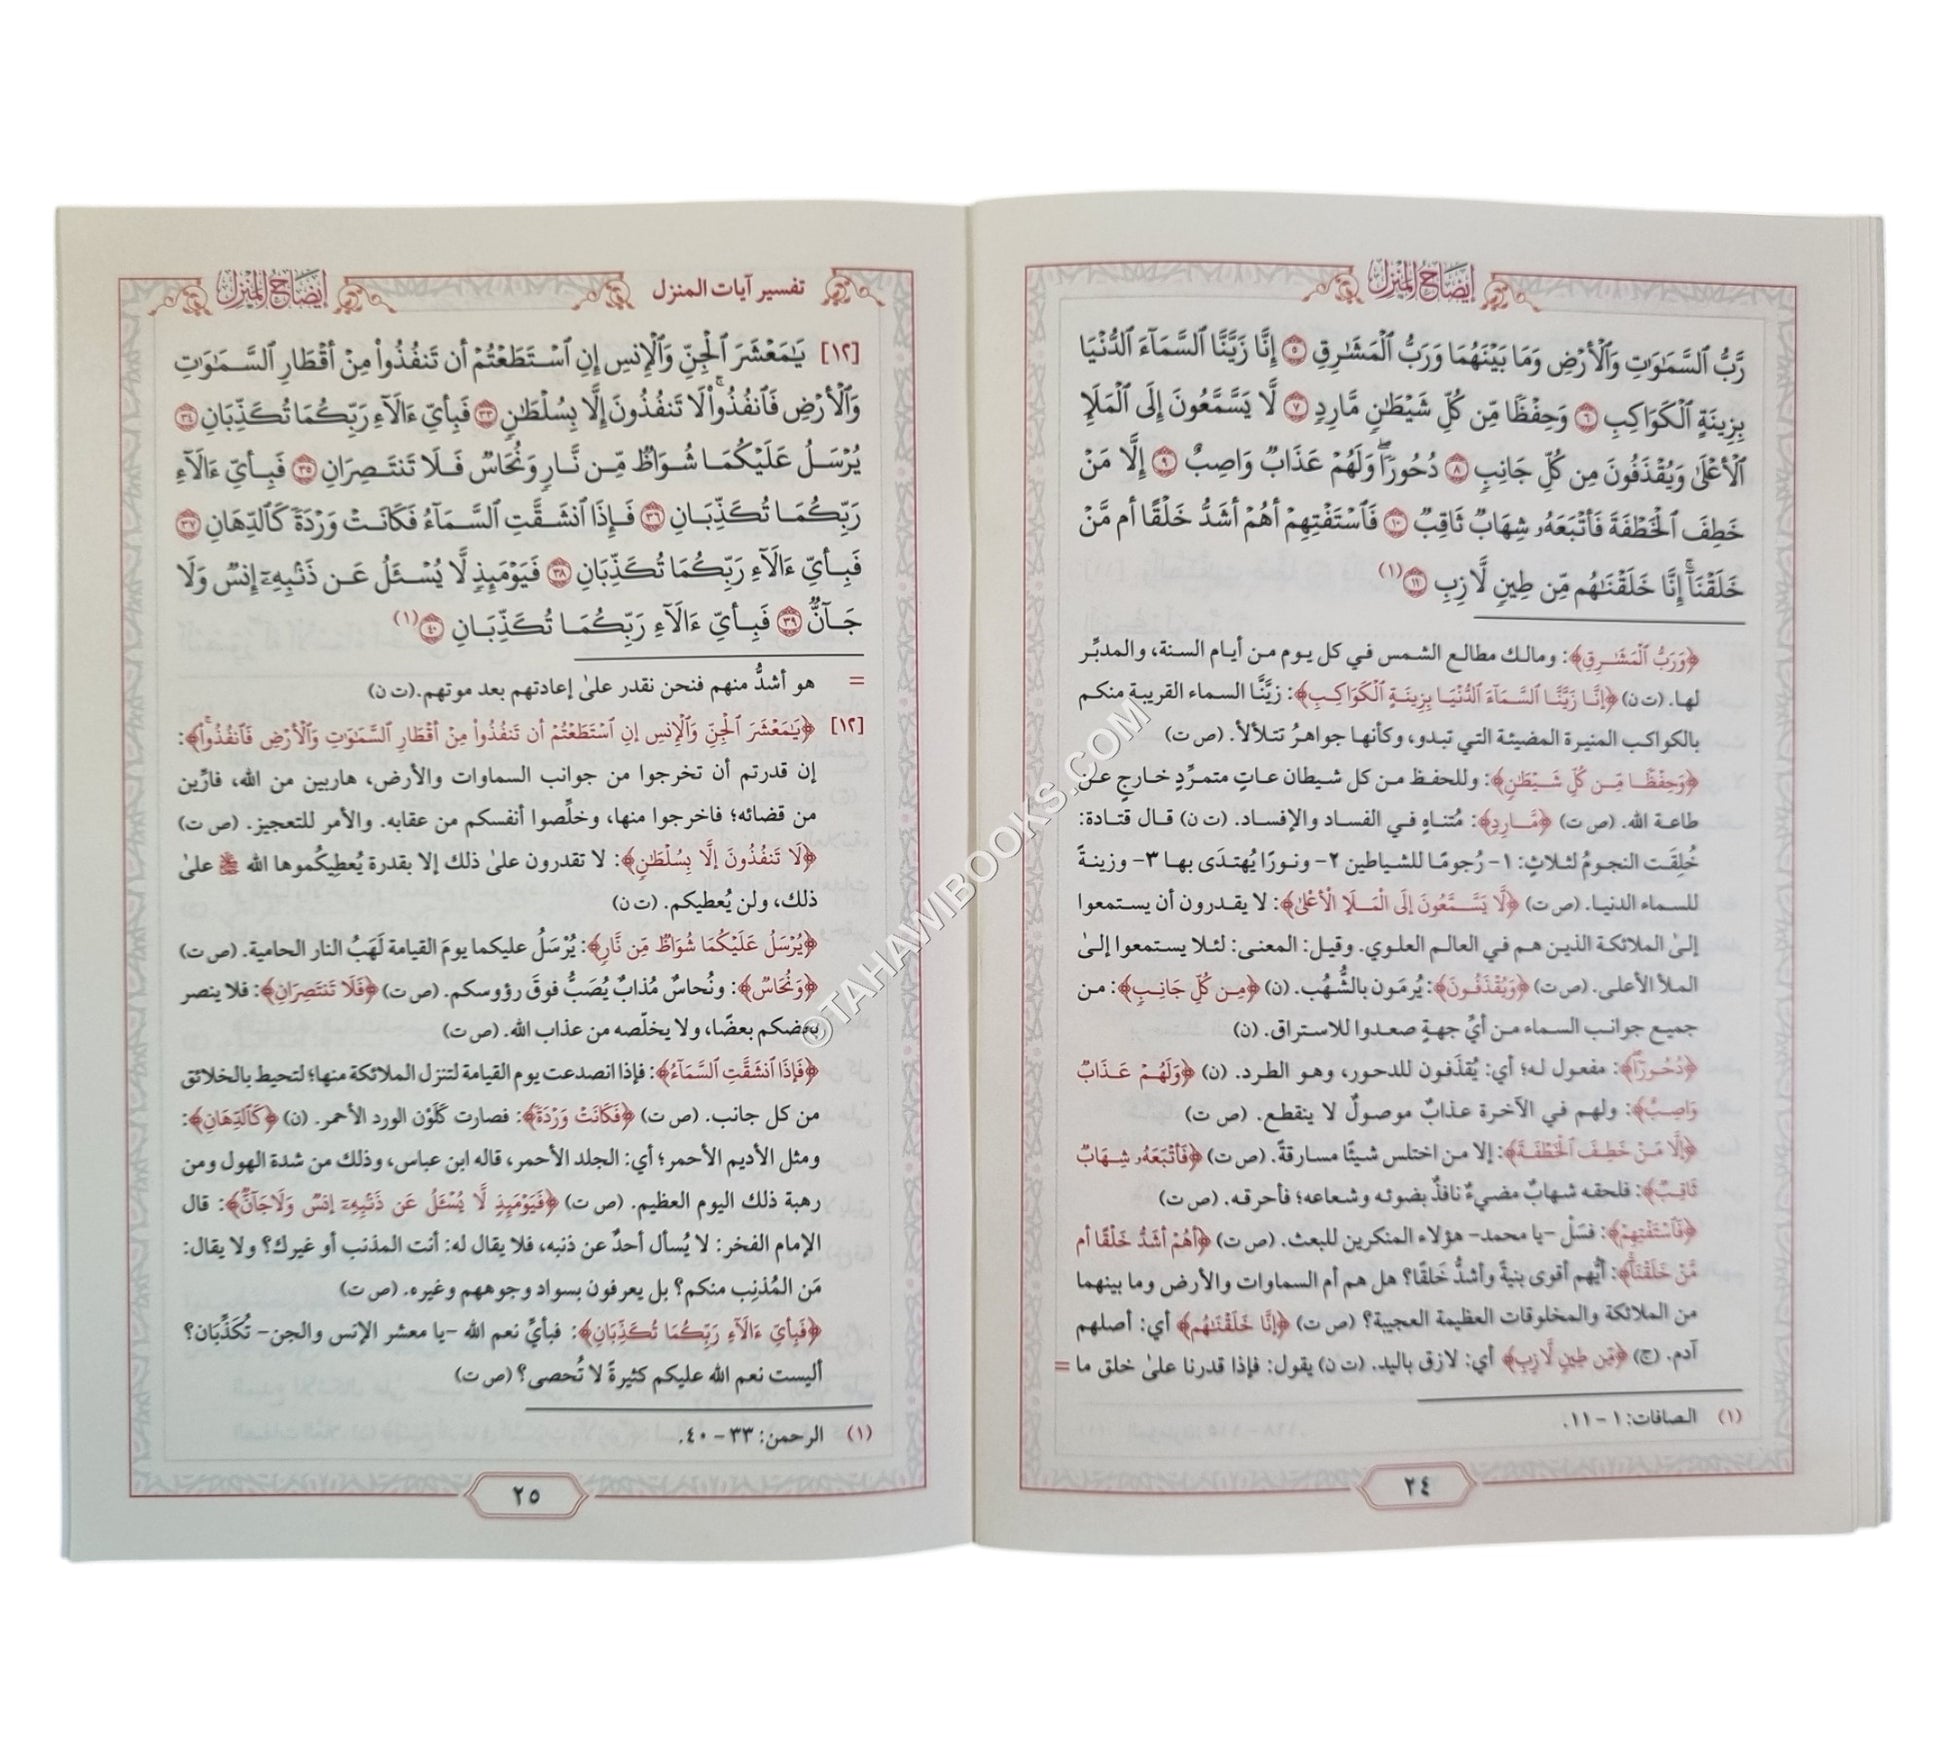 إيضاح المنزل
رَّبُّ ٱلسَّمَٰوَٰتِ وَٱلۡأَرۡضِ وَمَا بَيۡنَهُمَا وَرَبُّ ٱلۡمَشَٰرِقِ ٥ إِنَّا زَيَّنَّا ٱلسَّمَآءَ ٱلدُّنۡيَا
بِزِينَةٍ ٱلۡكَوَاكِبِ ٦ وَحِفۡظٗا مِّن كُلِّ شَيۡطَٰنٖ مَّارِدٖ ٧ لَّا يَسَّمَّعُونَ إِلَى ٱلۡمَلَإِ
ٱلۡأَعۡلَىٰ وَيُقۡذَفُونَ مِن كُلِّ جَانِبٖ ٨ دُحُورٗاۖ وَلَهُمۡ عَذَابٞ وَاصِبٌ ٩ إِلَّا مَنۡ
خَطِفَ ٱلۡخَطۡفَةَ فَأَتۡبَعَهُۥ شِهَابٞ ثَاقِبٞ ١٠ فَٱسۡتَفۡتِهِمۡ أَهُمۡ أَشَدُّ خَلۡقًا أَم مَّنۡ
خَلَقۡنَآۚ إِنَّا خَلَقۡنَٰهُم مِّن طِينٖ لَّازِبِۭ ١١ (١)
﴿وَرَبُّ ٱلۡمَشَٰرِقِ﴾: ومالك مطالع الشمس في كل يوم من أيام السنة، والمدبِّر
لها. (ت ن) ﴿إِنَّا زَيَّنَّا ٱلسَّمَآءَ ٱلدُّنۡيَا بِزِينَةٍ ٱلۡكَوَاكِبِ﴾: زيَّنَّا السماء القريبة منكم
بالكواكب المنيرة المضيئة التي تبدو، وكأنها جواهرُ تتلألأ. (ص ت)
﴿وَحِفۡظٗا مِّن كُلِّ شَيۡطَٰنٖ﴾: وللحفظ من كل شيطان عاتٍ متمرِّدٍ خارجٍ عن
طاعة الله. (ص ت) ﴿مَّارِدٖ﴾: مُتناهٍ في الفساد والإفساد. (ت ن) قال قتادة:
خُلِقَت النجومُ لثلاثٍ: ١- رُجومًا للشياطين ٢- ونورًا يُهتدَى بها ٣- وزينةً
للسماء الدنيا. (ص ت) ﴿لَّا يَسَّمَّعُونَ إِلَى ٱلۡمَلَإِ ٱلۡأَعۡلَىٰ﴾: لا يقدرون أن يستمعوا
إلىٰ الملائكة الذين هم في العالم العلوي. وقيل: المعنى: لئلا يستمعوا إلىٰ
الملأ الأعلى. (ص ت) ﴿وَيُقۡذَفُونَ﴾: يُرمَون بالشُّهُب. (ن) ﴿مِن كُلِّ جَانِبٖ﴾: من
جميع جوانب السماء من أيِّ جهةٍ صعدوا للاستراق. (ن)
﴿دُحُورٗا﴾: مفعول له؛ أي: يُقذَفون للدحور، وهو الطرد. (ن) ﴿وَلَهُمۡ عَذَابٞ
وَاصِبٌ﴾: ولهم في الآخرة عذابٌ موصولٌ لا ينقطع. (ص ت)
﴿إِلَّا مَنۡ خَطِفَ ٱلۡخَطۡفَةَ﴾: إلا من اختلس شيئًا مسارقةً. (ص ت) ﴿فَأَتۡبَعَهُۥ شِهَابٞ
ثَاقِبٞ﴾: فلحقه شهابٌ مضيءٌ نافذٌ بضوئه وشعاعه؛ فأحرقه. (ص ت)
﴿فَٱسۡتَفۡتِهِمۡ﴾: فسَلْ -يا محمد- هؤلاء المنكرين للبعث. (ص ت) ﴿أَهُمۡ أَشَدُّ خَلۡقًا أَم
مَّنۡ خَلَقۡنَآۚ﴾: أيُّهم أقوى بنيةً وأشدُّ خَلقًا؟ هل هم أم السماوات والأرض وما بينهما
من الملائكة والمخلوقات العظيمة العجيبة؟ (ص ت) ﴿إِنَّا خَلَقۡنَٰهُم﴾ أي: أصلهم
آدم. (ج) ﴿مِّن طِينٖ لَّازِبِۭ﴾ أي: لازق باليد. (ت ن) يقول: فإذا قدرنا علىٰ خلق ما =
(١) الصافات: ١ - ١١.
٢٤
تفسير آيات المنزل
إيضاح المنزل
[١٢] يَٰمَعۡشَرَ ٱلۡجِنِّ وَٱلۡإِنسِ إِنِ ٱسۡتَطَعۡتُمۡ أَن تَنفُذُواْ مِنۡ أَقۡطَارِ ٱلسَّمَٰوَٰتِ
وَٱلۡأَرۡضِ فَٱنفُذُواْۚ لَا تَنفُذُونَ إِلَّا بِسُلۡطَٰنٖ ٣٣ فَبِأَيِّ ءَالَآءِ رَبِّكُمَا تُكَذِّبَانِ ٣٤
يُرۡسَلُ عَلَيۡكُمَا شُوَاظٞ مِّن نَّارٖ وَنُحَاسٞ فَلَا تَنتَصِرَانِ ٣٥ فَبِأَيِّ ءَالَآءِ
رَبِّكُمَا تُكَذِّبَانِ ٣٦ فَإِذَا ٱنشَقَّتِ ٱلسَّمَآءُ فَكَانَتۡ وَرۡدَةٗ كَٱلدِّهَانِ ٣٧
فَبِأَيِّ ءَالَآءِ رَبِّكُمَا تُكَذِّبَانِ ٣٨ فَيَوۡمَئِذٖ لَّا يُسۡـَٔلُ عَن ذَنۢبِهِۦٓ إِنسٞ وَلَا
جَآنّٞ ٣٩ فَبِأَيِّ ءَالَآءِ رَبِّكُمَا تُكَذِّبَانِ ٤٠ (١)
= هو أشدُّ منهم فنحن نقدر علىٰ إعادتهم بعد موتهم. (ت ن)
[١٢] ﴿يَٰمَعۡشَرَ ٱلۡجِنِّ وَٱلۡإِنسِ إِنِ ٱسۡتَطَعۡتُمۡ أَن تَنفُذُواْ مِنۡ أَقۡطَارِ ٱلسَّمَٰوَٰتِ وَٱلۡأَرۡضِ فَٱنفُذُواْۚ﴾:
إن قدرتم أن تخرجوا من جوانب السماوات والأرض، هاربين من الله، فارِّين
من قضائه؛ فاخرجوا منها، وخلِّصوا أنفسكم من عقابه. والأمر للتعجيز. (ص ت)
﴿لَا تَنفُذُونَ إِلَّا بِسُلۡطَٰنٖ﴾: لا تقدرون علىٰ ذلك إلا بقدرة يُعطِيكُموها الله ﷻ علىٰ
ذلك، ولن يُعطيكم. (ت ن)
﴿يُرۡسَلُ عَلَيۡكُمَا شُوَاظٞ مِّن نَّارٖ﴾: يُرْسَلُ عليكما يومَ القيامة لَهَبُ النار الحامية. (ص ت)
﴿وَنُحَاسٞ﴾: ونُحاسٌ مُذابٌ يُصَبُّ فوقَ رؤوسكم. (ص ت) ﴿فَلَا تَنتَصِرَانِ﴾: فلا ينصر
بعضكم بعضًا، ولا يخلّصه من عذاب الله. (ص ت)
﴿فَإِذَا ٱنشَقَّتِ ٱلسَّمَآءُ﴾: فإذا انصدعت يوم القيامة لتنزل الملائكة منها؛ لتحيط بالخلائق
من كل جانب. (ص ت) ﴿فَكَانَتۡ وَرۡدَةٗ﴾: فصارت كَلَوْن الورد الأحمر. (ن) ﴿كَٱلدِّهَانِ﴾:
ومثل الأديم الأحمر؛ أي: الجلد الأحمر، قاله ابن عباس، وذلك من شدة الهول ومن
رهبة ذلك اليوم العظيم. (ص ت) ﴿فَيَوۡمَئِذٖ لَّا يُسۡـَٔلُ عَن ذَنۢبِهِۦٓ إِنسٞ وَلَا جَآنّٞ﴾: قال
الإمام الفخر: لا يُسأل أحدٌ عن ذنبه، فلا يقال له: أنت المذنب أو غيرك؟ ولا يقال:
مَن المُذنِب منكم؟ بل يعرفون بسواد وجوههم وغيره. (ص ت)
﴿فَبِأَيِّ ءَالَآءِ رَبِّكُمَا تُكَذِّبَانِ﴾: فبأيِّ نعم الله -يا معشر الإنس والجن- تُكَذِّبَان؟
أليست نعم الله عليكم كثيرةً لا تُحصى؟ (ص ت)
(١) الرحمن: ٣٣ - ٤٠.
٢٥
©TAHAWIBOOKS.COM